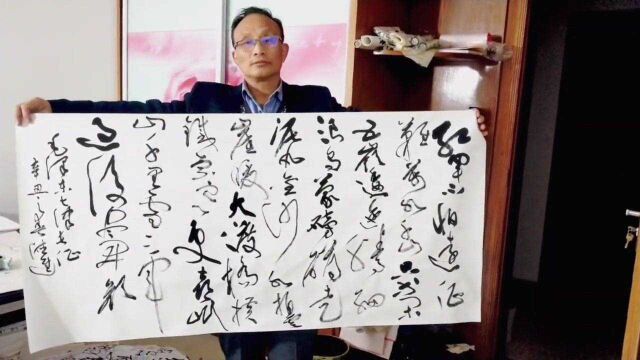 红军不怕遠征
難萬水千山只等闲
五嶺逶迤腾细
浪乌蒙磅礴走
泥丸金沙水拍雲
崖暖大渡橋横
鐵索寒更喜岷
山千里雪三军
过後尽開颜
毛泽东七律长征
辛丑春